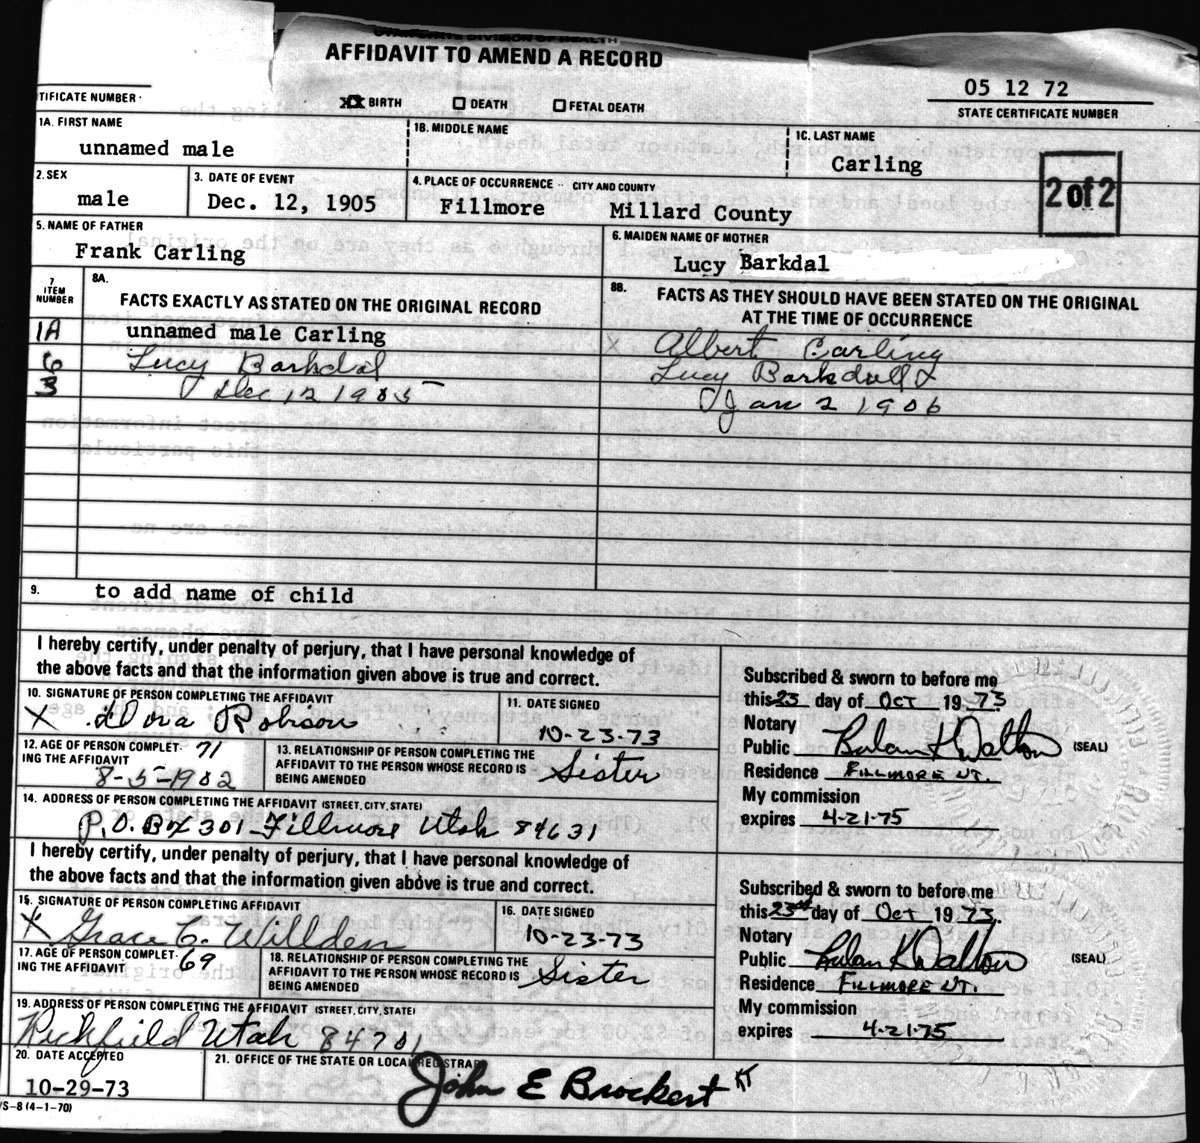 AFFIDAVIT TO AMEND A RECORD
05 12 72
TIFICATE NUMBER
BIRTH DEATH FETAL DEATH
STATE CERTIFICATE NUMBER
1A. FIRST NAME 1B. MIDDLE NAME 1C. LAST NAME
unnamed male Carling
2 of 2
2. SEX 3. DATE OF EVENT 4. PLACE OF OCCURRENCE -- CITY AND COUNTY
male Dec. 12, 1905 Fillmore Millard County
5. NAME OF FATHER 6. MAIDEN NAME OF MOTHER
Frank Carling Lucy Barkdal
7 ITEM NUMBER
8A. FACTS EXACTLY AS STATED ON THE ORIGINAL RECORD
8B. FACTS AS THEY SHOULD HAVE BEEN STATED ON THE ORIGINAL
AT THE TIME OF OCCURRENCE
1A unnamed male Carling X Albert Carling
6 Lucy Barkdal Lucy Barkdull
3 Dec 12 1905 Jan 2 1906
9. to add name of child
I hereby certify, under penalty of perjury, that I have personal knowledge of
the above facts and that the information given above is true and correct.
10. SIGNATURE OF PERSON COMPLETING THE AFFIDAVIT 11. DATE SIGNED
X Dora Robison 10-23-73
12. AGE OF PERSON COMPLET- 71
ING THE AFFIDAVIT
8-5-1902
13. RELATIONSHIP OF PERSON COMPLETING THE
AFFIDAVIT TO THE PERSON WHOSE RECORD IS
BEING AMENDED
Sister
14. ADDRESS OF PERSON COMPLETING THE AFFIDAVIT (STREET, CITY, STATE)
P.O. Bx 301 Fillmore Utah 84631
Subscribed & sworn to before me
this 23 day of Oct 19 73
Notary
Public Walton (SEAL)
Residence FILLMORE UT.
My commission
expires 4-21-75
I hereby certify, under penalty of perjury, that I have personal knowledge of
the above facts and that the information given above is true and correct.
15. SIGNATURE OF PERSON COMPLETING AFFIDAVIT 16. DATE SIGNED
X Grace C. Willden 10-23-73
17. AGE OF PERSON COMPLET- 69
ING THE AFFIDAVIT
18. RELATIONSHIP OF PERSON COMPLETING THE
AFFIDAVIT TO THE PERSON WHOSE RECORD IS
BEING AMENDED
Sister
19. ADDRESS OF PERSON COMPLETING THE AFFIDAVIT (STREET, CITY, STATE)
Richfield Utah 84701
Subscribed & sworn to before me
this 23rd day of Oct 19 73.
Notary
Public Walton (SEAL)
Residence FILLMORE UT.
My commission
expires 4-21-75
20. DATE ACCEPTED 21. OFFICE OF THE STATE OR LOCAL REGISTRAR
10-29-73 John E Brockert KT
VS-8 (4-1-70)